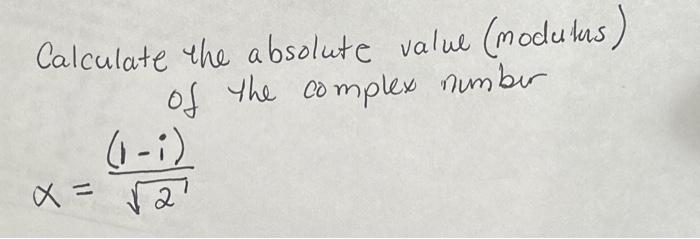 Calculate the absolute value (modulus)
of the complex number
α = (1-i)/√2